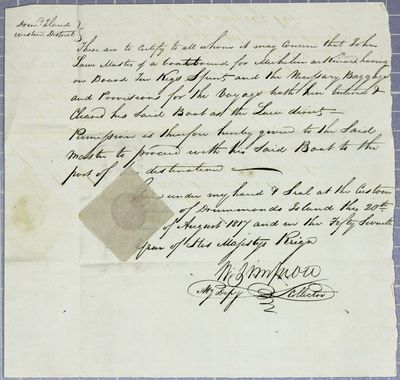 Drumd Island
Western District
These are to Certify to all whom it may Concern that John
Law Master of a Boat bound for Mackilm having
on Board Ten Kegs Spirits and the Necessary Baggage
and Provisions for the Voyage hath here Entered &
Cleared his Said Boat as the Law directs
Permission is therefore hereby given to the Said
Master to proceed with his Said Boat to the
port of destination
under my hand & Seal at the Custom
of Drummonds Island this 20th
of August 1817 and in the Fifty Seventh
year of His Majestys Reign
Wm Simpson
Actg Depy Collector